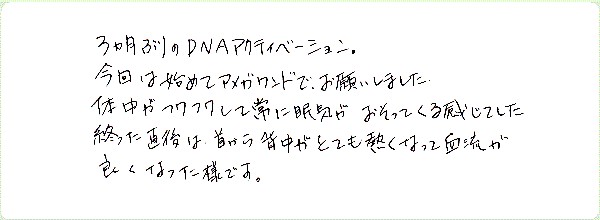 3ヵ月ぶりのDNAアクティベーション。
今回は始めてアメガワンドで、お願いしました。
体中がフワフワして常に眠気が おそってくる感じでした
終った直後は、首から背中がとても熱くなって血流が
良くなった様です。